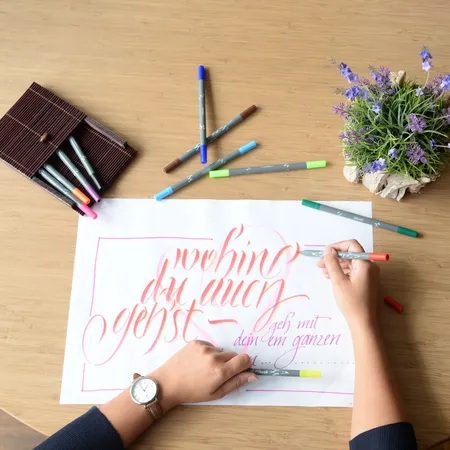 wohin
du auch
gehst –
geh mit
deinem ganzen